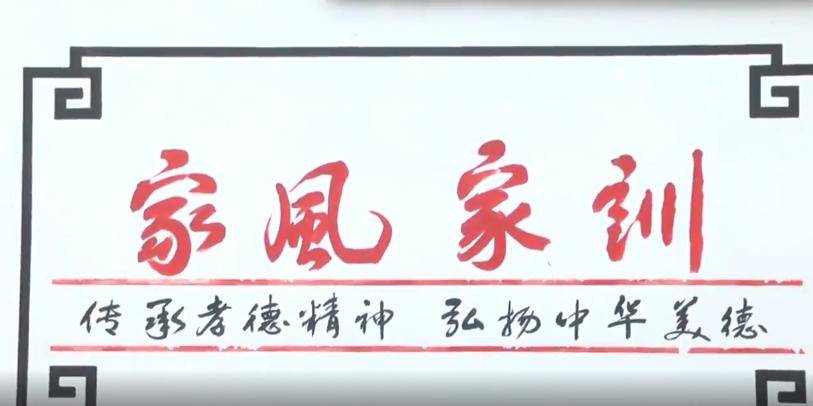 家風家訓
传承孝德精神 弘扬中华美德